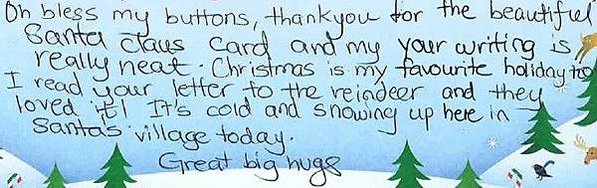 Oh bless my buttons, thankyou for the beautiful
Santa Claus card and my your writing is
really neat. Christmas is my favourite holiday too
I read your letter to the reindeer and they
loved it! It's cold and snowing up here in
Santa's village today.
Great big hugs